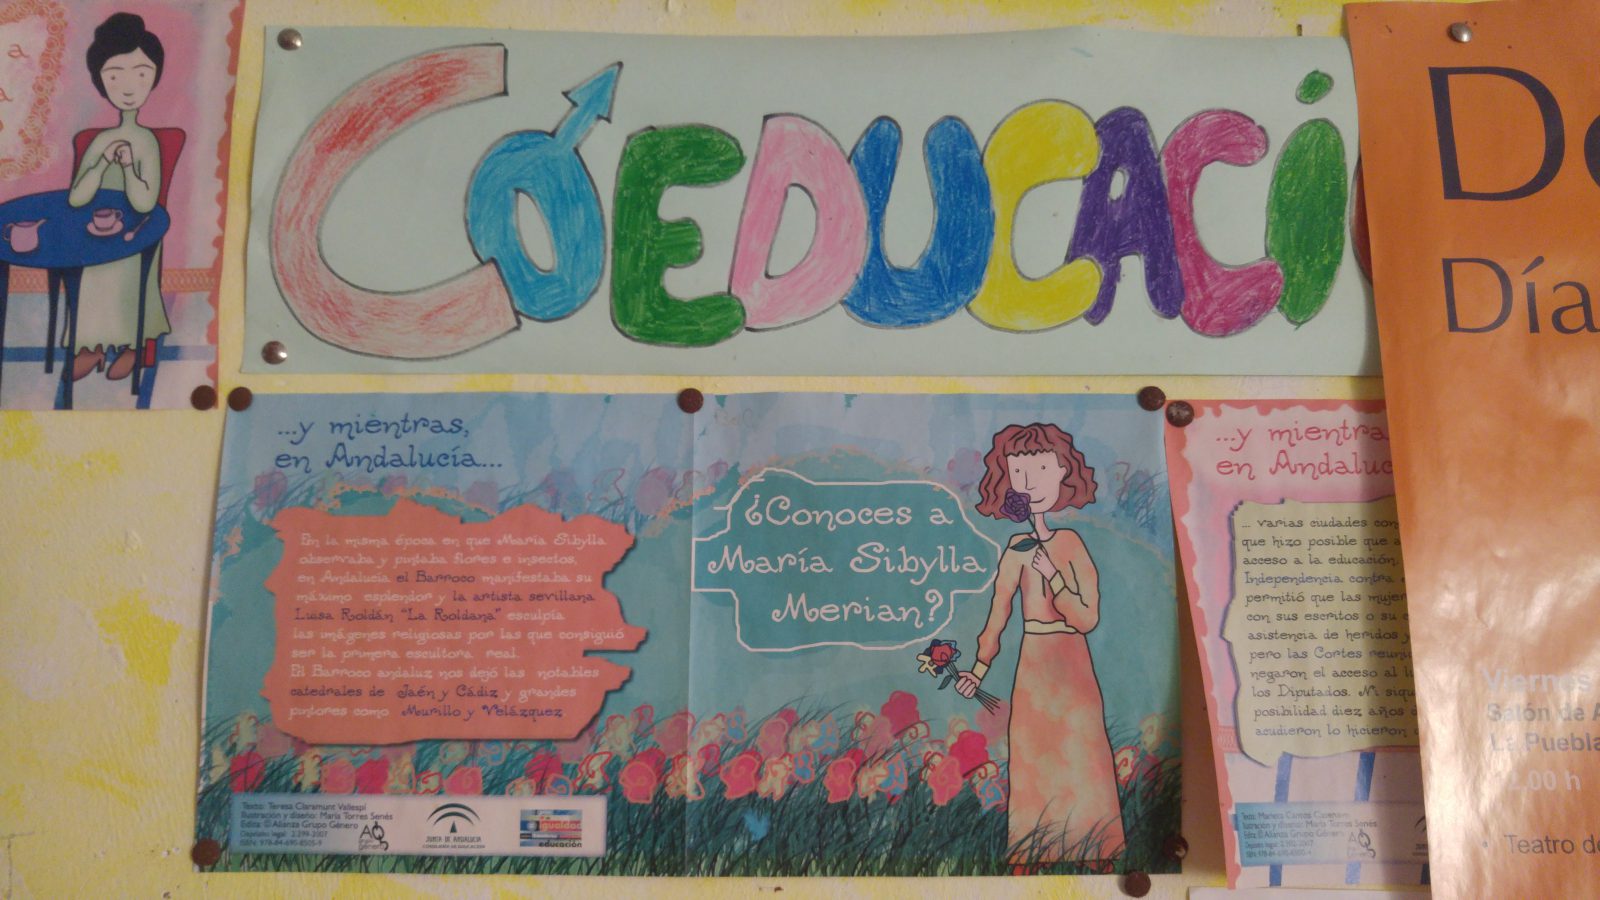 a
a
COEDUCACIÓ
...y mientras,
en Andalucía...
En la misma época en que María Sibylla
observaba y pintaba flores e insectos,
en Andalucía el Barroco manifestaba su
máximo esplendor y la artista sevillana
Luisa Roldán "La Roldana" esculpía
las imágenes religiosas por las que consiguió
ser la primera escultora real.
El Barroco andaluz nos dejó las notables
catedrales de Jaén y Cádiz y grandes
pintores como Murillo y Velázquez
Texto: Teresa Claramunt Vallespí
Ilustración y diseño: María Torres Senés
Edita: © Alianza Grupo Género
Depósito legal: 2.299-2007
ISBN: 978-84-690-8505-9
AG
género
JUNTA DE ANDALUCIA
CONSEJERÍA DE EDUCACIÓN
igualdad
educación
¿Conoces a
María Sibylla
Merian?
...y mientra
en Andaluc
... varias ciudades con
que hizo posible que a
acceso a la educación.
Independencia contra
permitió que las mujer
con sus escritos o su
asistencia de heridos y
pero las Cortes reuni
negaron el acceso al
los Diputados. Ni siqu
posibilidad diez años d
acudieron lo hicieron
Ilustración y diseño: María Torres Senés
Edita: © Alianza Grupo Género
De
Día
Viernes
Salón de A
La Puebla
12,00 h
· Teatro de